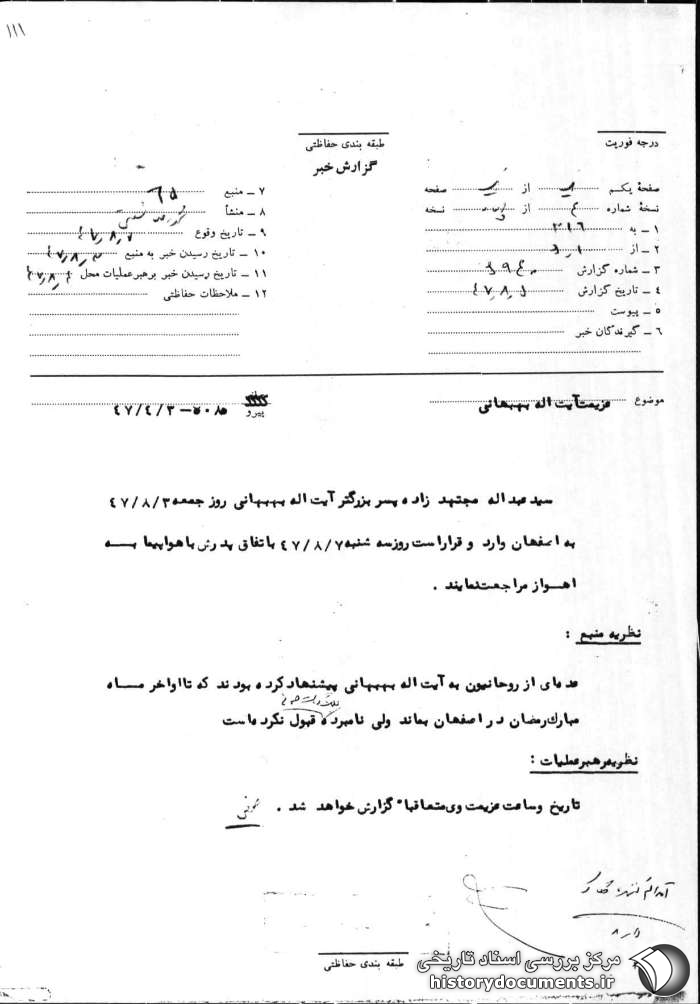 ۱۱۱
طبقه بندی حفاظتی
گزارش خبر
درجه فوریت
صفحهٔ یکم از صفحه
نسخهٔ شماره ۴ از نسخه
۱ – به ۳۱۶
۲ – از
۳ – شماره گزارش
۴ – تاریخ گزارش
۵ – پیوست
۶ – گیرندگان خبر
۷ – منبع
۸ – منشأ
۹ – تاریخ وقوع ۴۷٫۸٫۷
۱۰ – تاریخ رسیدن خبر به منبع
۱۱ – تاریخ رسیدن خبر برهبرعملیات محل
۱۲ – ملاحظات حفاظتی
موضوع عزیمت آیت اله بهبهانی
پیرو ۴۷/۴/۳
سید عبداله مجتهد زاده پسر بزرگتر آیت اله بهبهانی روز جمعه ۴۷/۸/۳
به اصفهان وارد و قرار است روز سه شنبه ۴۷/۸/۷ باتفاق پدرش با هواپیما بـــه
اهواز مراجعت نمایند .
نظریه منبع :
عده‌ای از روحانیون به آیت اله بهبهانی پیشنهاد کرده بودند که تا اواخر مـــاه
مبارک رمضان در اصفهان بماند ولی نامبرده قبول نکرده است
نظریه رهبر عملیات :
تاریخ وساعت عزیمت وی متعاقباً گزارش خواهد شد .
طبقه بندی حفاظتی
مرکز بررسی اسناد تاریخی
historydocuments.ir